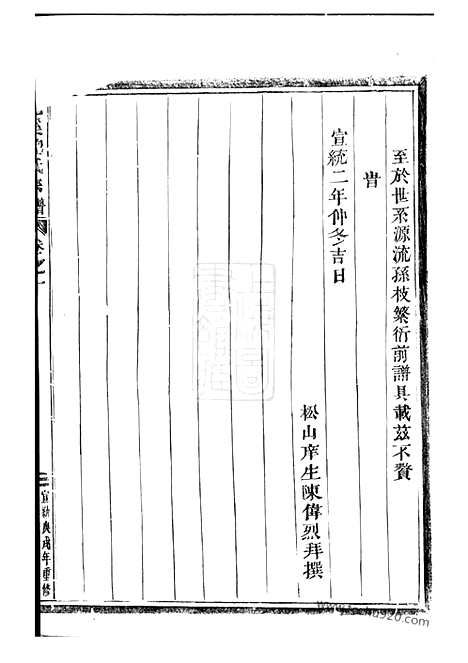 至於世系源流孫枝繁衍前譜具載茲不贅
旹
宣統二年仲冬吉日
松山庠生陳偉烈拜撰
譜
卷之一
宣統庚戌年重修